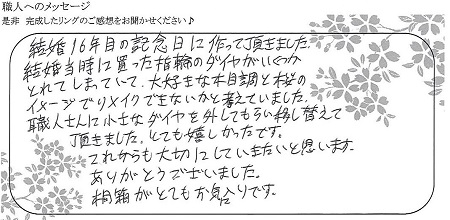 職人へのメッセージ
是非 完成したリングのご感想をお聞かせください♪
結婚16年目の記念日に作って頂きました。
結婚当時に買った指輪のダイヤがいくつか
とれてしまっていて、大好きな木目調と桜の
イメージでリメイクできないかと考えていました。
職人さんに小さなダイヤを外してもらい移し替えて
頂きました。とても嬉しかったです。
これからも大切にしていきたいと思います。
ありがとうございました。
桐箱がとてもお気に入りです。